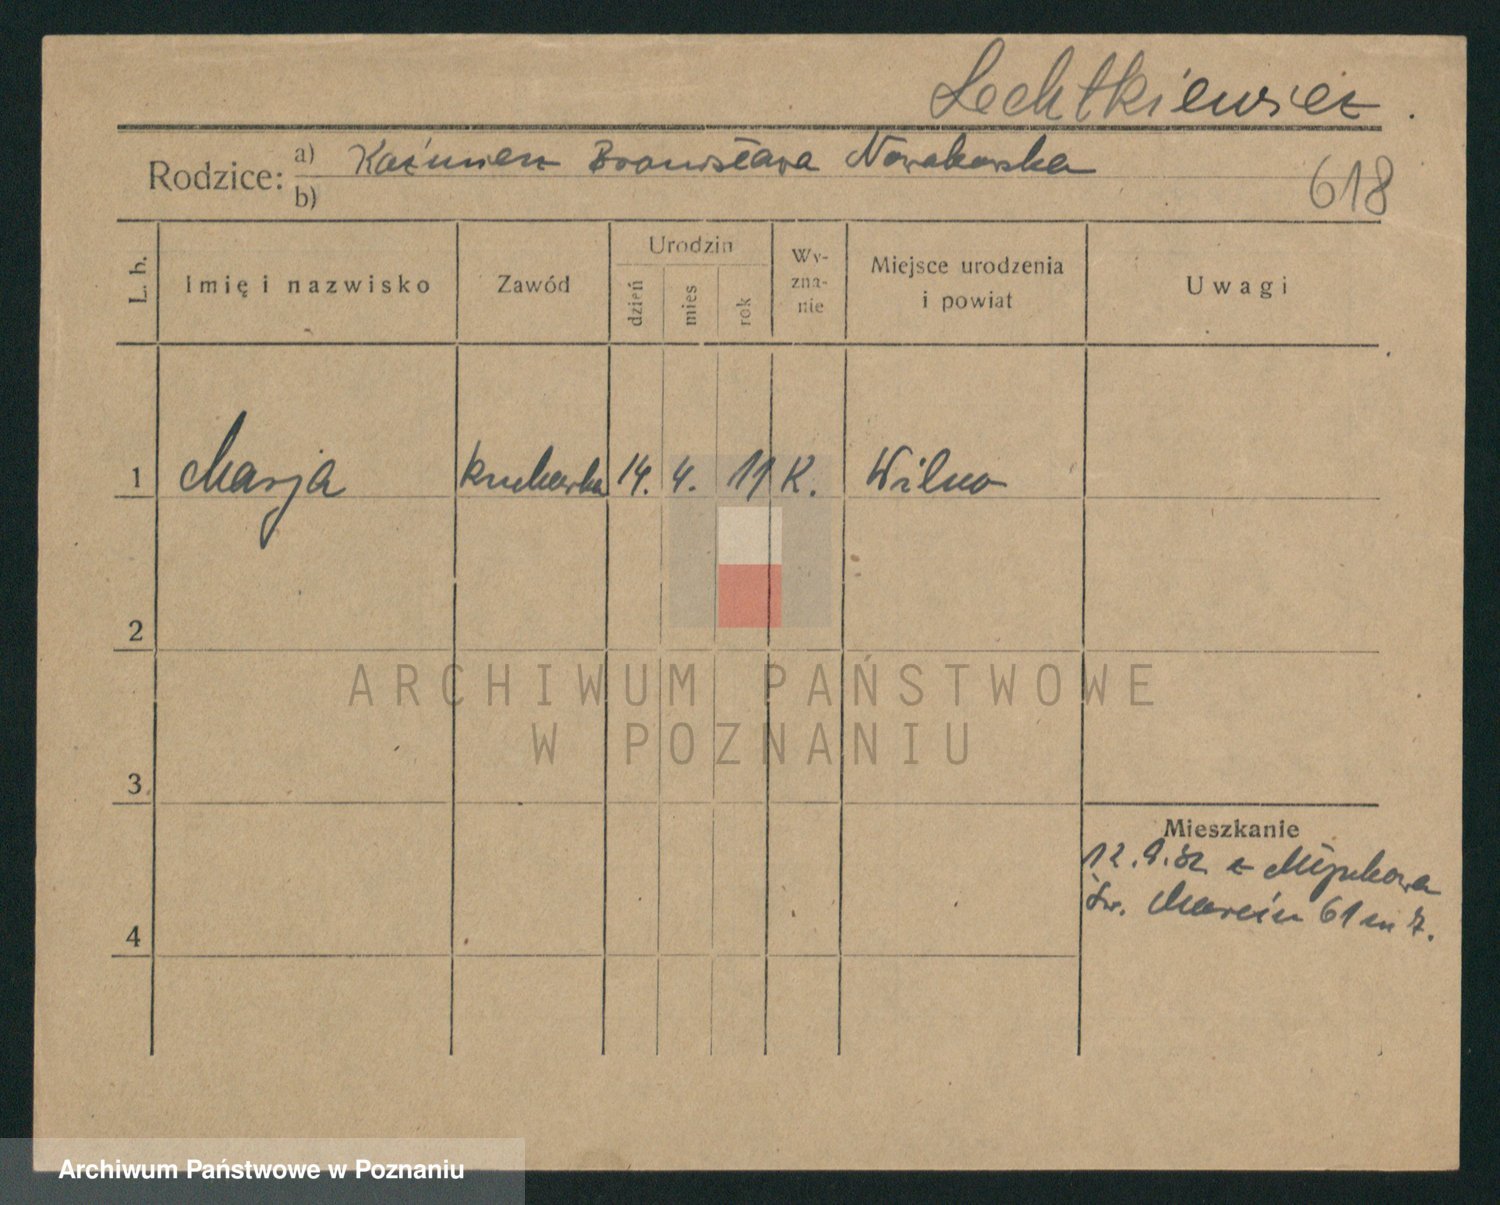 Lechtkiewicz
Rodzice: a) Kaźmierz Bronisława Nowakowska
b)
618
L. b.
Imię i nazwisko
Zawód
Urodzin
dzień
mies
rok
Wy-
zna-
nie
Miejsce urodzenia
i powiat
Uwagi
1 Marja kucharka 14. 4. 11 K. Wilno
2
ARCHIWUM PAŃSTWOWE
W POZNANIU
3
Mieszkanie
12. 9. 32 z
Św. Marcin 61 m 7.
4
Archiwum Państwowe w Poznaniu